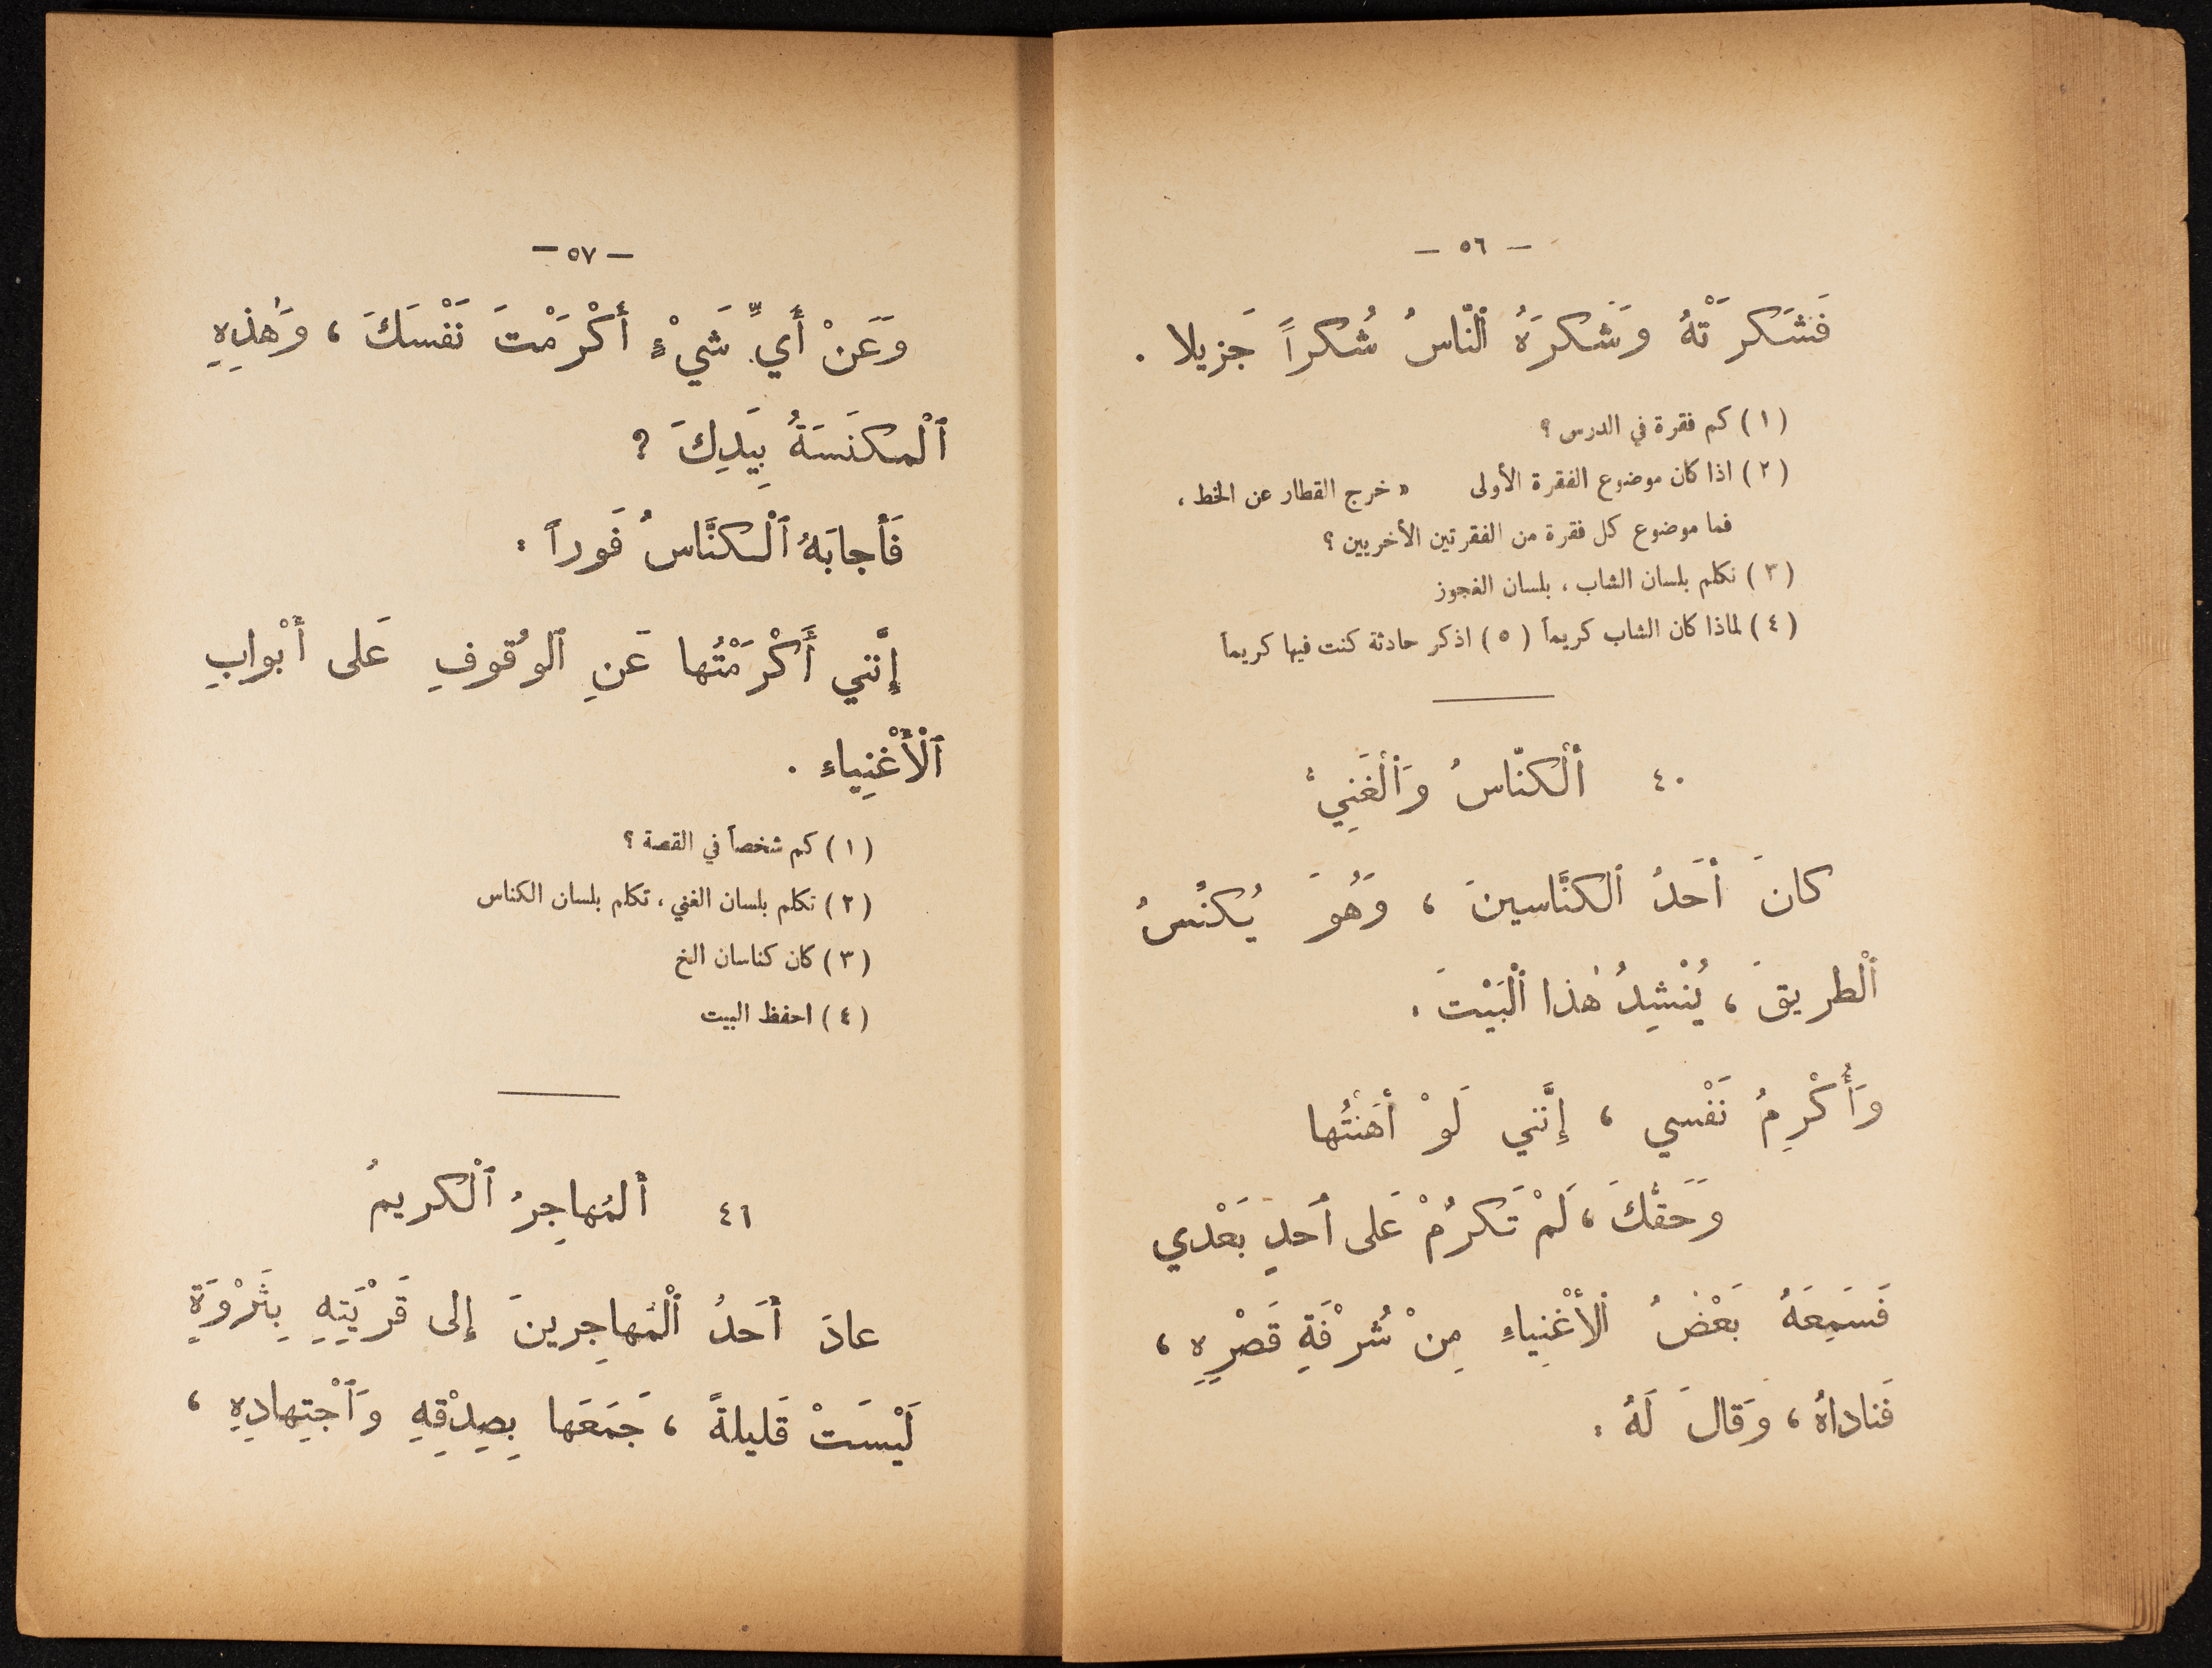 — ٥٦ —
فَشَكَرَتْهُ وَشَكَرَهُ ٱلنّاسُ شُكراً جَزيلا .
( ١ ) كم فقرة في الدرس ؟
( ٢ ) اذا كان موضوع الفقرة الأولى « خرج القطار عن الخط ،
فما موضوع كل فقرة من الفقرتين الأخريين ؟
( ٣ ) تكلم بلسان الشاب ، بلسان العجوز
( ٤ ) لماذا كان الشاب كريماً ( ٥ ) اذكر حادثة كنت فيها كريماً
٤٠ أَلْكنّاسُ وَٱلْغَنِيُّ
كانَ أَحَدُ ٱلكنَّاسينَ ، وَهُوَ يُكنُسُ
ٱلْطريقَ ، يُنْشِدُ هٰذا ٱلْبَيْتَ .
وَأُكْرِمُ نَفْسي ، إِنَّني لَوْ أَهَنْتُها
وَحَقِّكَ ، لَمْ تَكرُمْ عَلى أَحَدٍ بَعْدي
فَسَمِعَهُ بَعْضُ ٱلأَغْنِياءِ مِنْ شُرْفَةِ قَصْرِهِ ،
فَناداهُ ، وَقالَ لَهُ :
— ٥٧ —
وَعَنْ أَيِّ شَيْءٍ أَكْرَمْتَ نَفْسَكَ ، وَهٰذِهِ
ٱلْمكنَسَةُ بِيَدِكَ ؟
فَأَجابَهُ ٱلْكنَّاسُ فَوراً :
إِنَّني أَكْرَمْتُها عَنِ ٱلوُقُوفِ عَلى أَبْوابِ
ٱلْأَغْنِياءِ .
( ١ ) كم شخصاً في القصة ؟
( ٢ ) تكلم بلسان الغني ، تكلم بلسان الكناس
( ٣ ) كان كناسان الخ
( ٤ ) احفظ البيت
٤١ أَلمُهاجِرُ ٱلْكريمُ
عادَ أَحَدُ ٱلْمُهاجِرينَ إِلى قَرْيَتِهِ بِثَرْوَةٍ
لَيْسَتْ قَليلةً ، جَمَعَها بِصِدْقِهِ وَٱجْتِهادِهِ ،